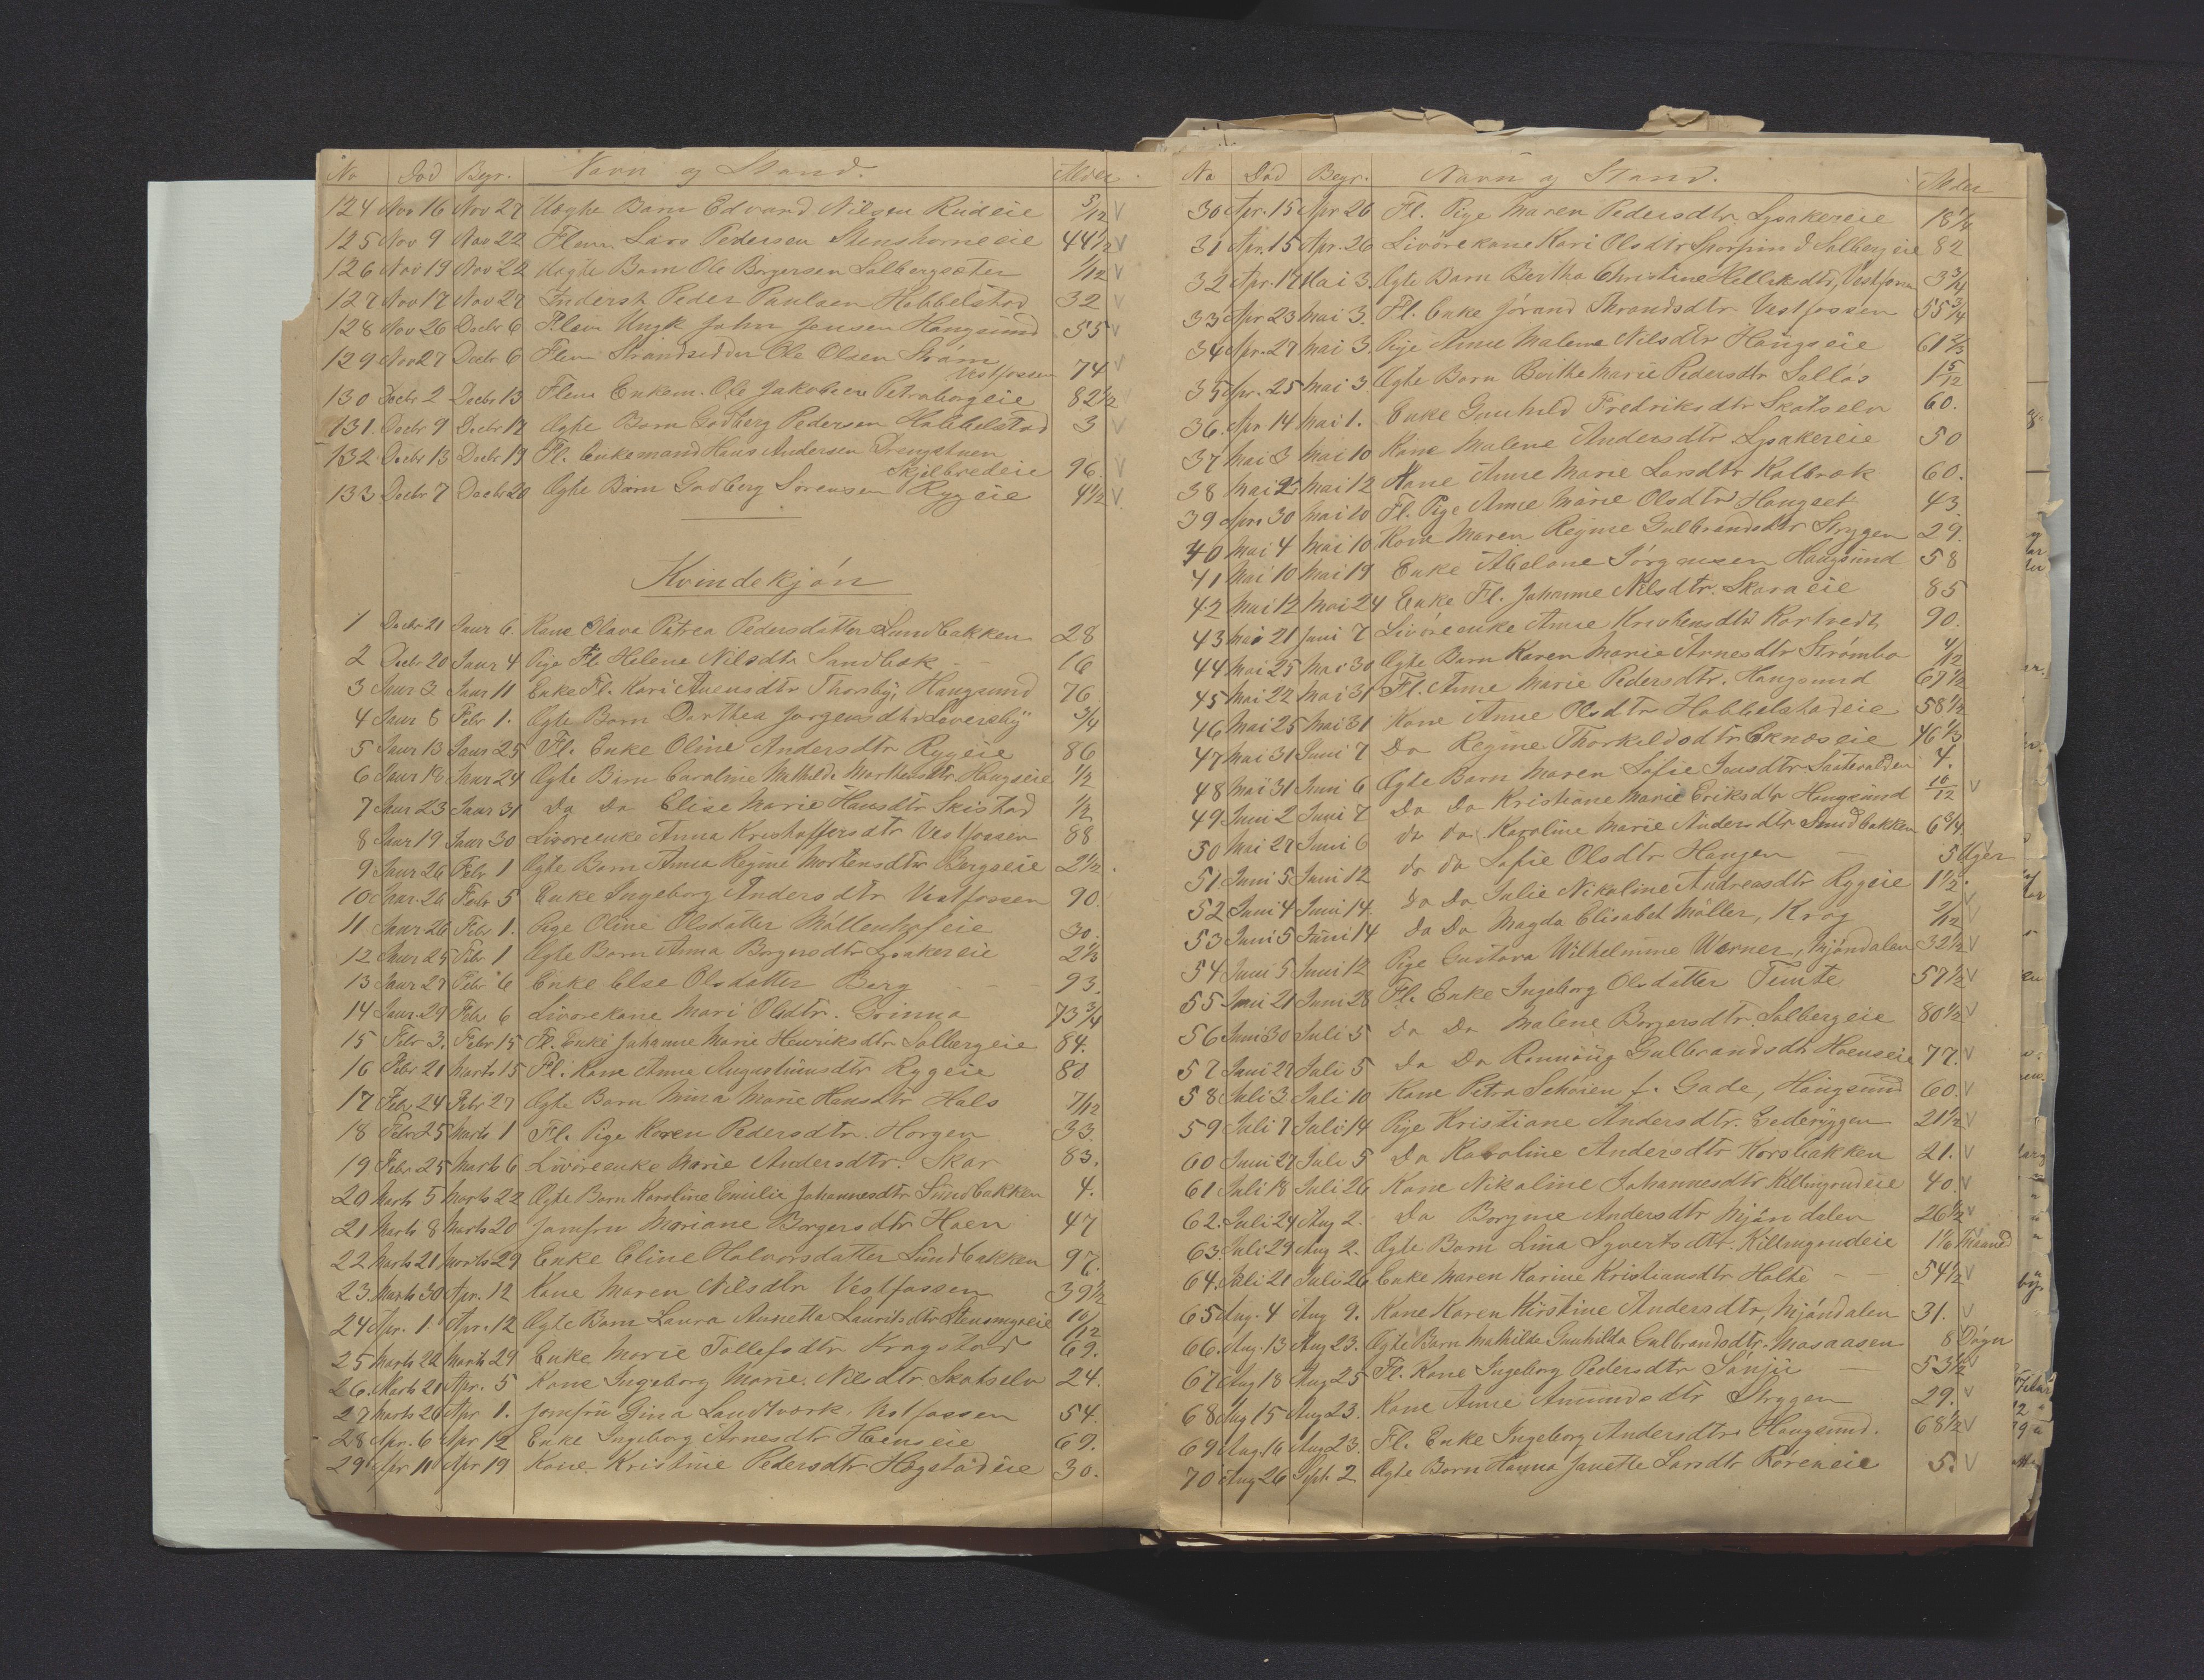 No Död Begr. Navn og Stand. Alder
124 Nov 16 Nov 27 Uægte Barn Edvard Nilsen Rudeie 5/12 V
125 Nov 9 Nov 22 Flem Lars Pedersen Stenshorneeie 44 1/2 V
126 Nov 19 Nov 22 Uægte Barn Ole Borgersen Solbergsæter 1/12 V
127 Nov 17 Nov 27 Inderst Peder Paulsen Hobbelstad 32 V
128 Nov 26 Decbr 6 Flem Ungk John Jensen Hougsund 55 V
129 Nov 27 Decbr 6 Flem Strandsidder Ole Olsen Ström
Vestfossen 74 V
130 Decbr 2 Decbr 13 Flem Enkem. Ole Jakobsen Petraborgeie 82 1/2 V
131. Decbr 9 Decbr 17 Ægte Barn Godberg Pedersen Hobbelstad 3 V
132 Decbr 13 Decbr 19 Fl. Enkemand Hans Andersen Drengstuen
Skjelbredeie 96 V
133 Decbr 7 Decbr 20 Ægte Barn Godberg Sorensen Rygeie 4 1/2 V
Kvindekjön
1 Decbr 21 Janr 6. Kone Olava Petrea Pedersdatter Sundbakken 28
2 Decbr 20 Janr 4 Pige Fl. Helene Nilsdtr Sandbæk 16
3 Janr 3 Janr 11 Enke Fl. Kari Auensdtr Thorsby, Hougsund 76
4 Janr 8 Febr 1. Ægte Barn Dorthea Jorgensdtr Loveresby 3/4
5 Janr 13 Janr 25 Fl. Enke Oline Andersdtr Rygeie 86
6 Janr 18 Janr 24 Ægte Barn Caroline Mathilde Mathisdtr Hougseie 1/2
7 Janr 23 Janr 31 Do Do Elise Marie Hansdtr Skistad 1/2
8 Janr 19 Janr 30 Livöreenke Anna Kristoffersdtr Vestfossen 88
9 Janr 26 Febr 1 Ægte Barn Anna Regine Mortensdtr Bergseie 2 1/2
10 Janr 26 Febr 5 Enke Ingeborg Andersdtr Vestfossen 90.
11 Janr 26 Febr 1. Pige Oline Olsdatter Möllenhofeie 30.
12 Janr 25 Febr 1 Ægte Barn Anna Borgersdtr Lysakereie 2 1/3
13 Janr 27 Febr 6 Enke Else Olsdatter Berg 93.
14 Janr 29 Febr 6 Livörekone Mari Olsdtr. Grinna 73 3/4
15 Febr 3. Febr 15 Fl. Enke Johanne Marie Henriksdtr Solbergeie 84.
16 Febr 21 Marts 15 Fl. Kone Anne Augustinusdtr Rygeie 80
17 Febr 24 Febr 27 Ægte Barn Mina Marie Hansdtr Hals 7/12
18 Febr 25 Marts 1 Fl. Pige Karen Pedersdtr. Horgen 33
19 Febr 25 Marts 6 Livöreenke Marie Andersdtr. Skar 83.
20 Marts 5 Marts 22 Ægte Barn Karoline Emilie Johannesdtr Sundbakken 4.
21 Marts 8 Marts 20 Jomfru Mariane Borgersdtr Hoen 47
22 Marts 21 Marts 29 Enke Eline Halvorsdatter Sundbakken 97.
23. Marts 30 Apr. 12 Kone Maren Nilsdtr Vestfossen 39 1/2
24 Apr. 1. Apr. 12 Ægte Barn Laura Annetta Lauritsdtr Stensmyreie 10/12
25 Marts 22 Marts 29 Enke Marie Tollefsdtr Kragstad 69.
26. Marts 21 Apr. 5 Kone Ingeborg Marie Nilsdtr Skotselv 24.
27 Marts 26 Apr 1. Jomfru Gina Landtværk. Vestfossen 54.
28 Apr. 6 Apr 12 Enke Ingeborg Arnesdtr Hoenseie 69.
29 Apr 11 Apr 19 Kone Kristine Pedersdtr Hogstadeie 30.
No Död Begr. Navn og Stand. Alder
30 Apr. 15 Apr 26 Fl. Pige Maren Pedersdtr Lysakereie 18 1/4
31 Apr. 15 Apr. 26 Livörekone Kari Olsdtr Solbergeie 82
32 Apr. 17 Mai 3. Ægte Barn Bertha Christine Helleksdtr, Vestfossen 3 3/4
33 Apr 23 Mai 3. Fl. Enke Jörand Throndsdtr Vestfossen 55 3/4
34 Apr. 27 Mai 3. Pige Anne Malene Nilsdtr Hougseie 61 2/3
35 Apr. 25 Mai 3 Ægte Barn Berthe Marie Pedersdtr Sollös 1 5/12
36. Apr 14 Mai 1. Enke Gunhild Fredriksdtr Skotselv 60.
37 Mai 3 Mai 10 Kone Malene Andersdtr Lysakereie 50
38 Mai 2 Mai 12 Kone Anne Marie Larsdtr Kolbræk 60.
39 Apr. 30 Mai 10 Fl. Pige Anne Marie Olsdtr Hougset 43
40 Mai 4 Mai 10 Kone Maren Regine Gulbrandsdtr Strygen 29.
41 Mai 10 Mai 19 Enke Abelone Jörgensen Hougsund 58
42 Mai 12 Mai 24 Enke Fl. Johanne Nilsdtr. Skaraeie 85
43 Mai 21 Juni 7 Livöreenke Anne Kristensdtr Kortvedt 90.
44 Mai 25 Mai 30 Ægte Barn Karen Marie Arnesdtr Strömbo 4/12
45 Mai 22 Mai 31 Fl. Anne Marie Pedersdtr. Hougsund 67 1/2
46 Mai 25 Mai 31 Kone Anne Olsdtr Hobbelstadeie 58 1/2
47 Mai 31 Juni 7 Do Regine Thorkildsdtr Eknæseie 46 1/3
48 Mai 31 Juni 6 Ægte Barn Maren Sofie Jensdtr 4.
49 Juni 2 Juni 7 Do Do Kristiane Marie Eriksdtr Hougsund 10/12 V
50 Mai 27 Juni 6 do do Karoline Marie Andersdtr Sundbakken 6 3/4
51 Juni 5 Juni 12 do do Sofie Olsdtr Hougen 5 Uger
52 Juni 4 Juni 14. Do Do Julie Nikoline Andreasdtr Rygeie 1 1/2. V
53 Juni 5 Juni 14 Do Do Magda Elisabet Möller, Krog 2/12 V
54 Juni 5 Juni 12 Pige Gustava Wilhelmine Werner, Mjöndalen 32 1/2 V
55 Juni 21 Juni 28 Fl. Enke Ingeborg Olsdatter Temte 57 1/2 V
56 Juni 30 Juli 5 Do Do Malene Borgersdtr Solbergeie 80 1/2 V
57 Juni 27 Juli 5 Do Do Rønnaug Gulbrandsdtr Hoenseie 77. V
58 Juli 3 Juli 10 Kone Petra Schöien f. Gade, Hougsund 60. V
59 Juli 7 Juli 14 Pige Kristiane Andersdtr. Gederyggen 21 1/2 V
60 Juni 27 Juli 5 Do Karoline Andersdtr Korsbakken 21. V
61 Juli 18 Juli 26 Kone Nikoline Johannesdtr Killingrudeie 40. V
62. Juli 24 Aug 2. Do Borgine Andersdtr Mjöndalen 26 1/2 V
63 Juli 29 Aug 2. Ægte Barn Lina Syvertsdtr. Killingrudeie Maaned
64. Juli 21 Juli 26 Enke Maren Karine Kristiansdtr Holtte 54 1/2 V
65 Aug. 4 Aug 9. Kone Karen Kirstine Andersdtr, Mjöndalen 31. V
66. Aug. 13 Aug 23. Ægte Barn Mathilde Gunhilda Gulbrandsdtr. Masaasen 8 Dögn
67 Aug 18 Aug 25 Fl. Kone Ingeborg Pedersdtr Sönju 53 1/2 V
68 Aug 15 Aug 23. Kone Anne Amundsdtr Strygen 29. V
69 Aug. 16 Aug 23. Fl. Enke Ingeborg Andersdtr Hougsund. 68 1/2 V
70 Aug 26 Sept. 2 Ægte Barn Hanna Janette Larsdtr Röreneie 5. V